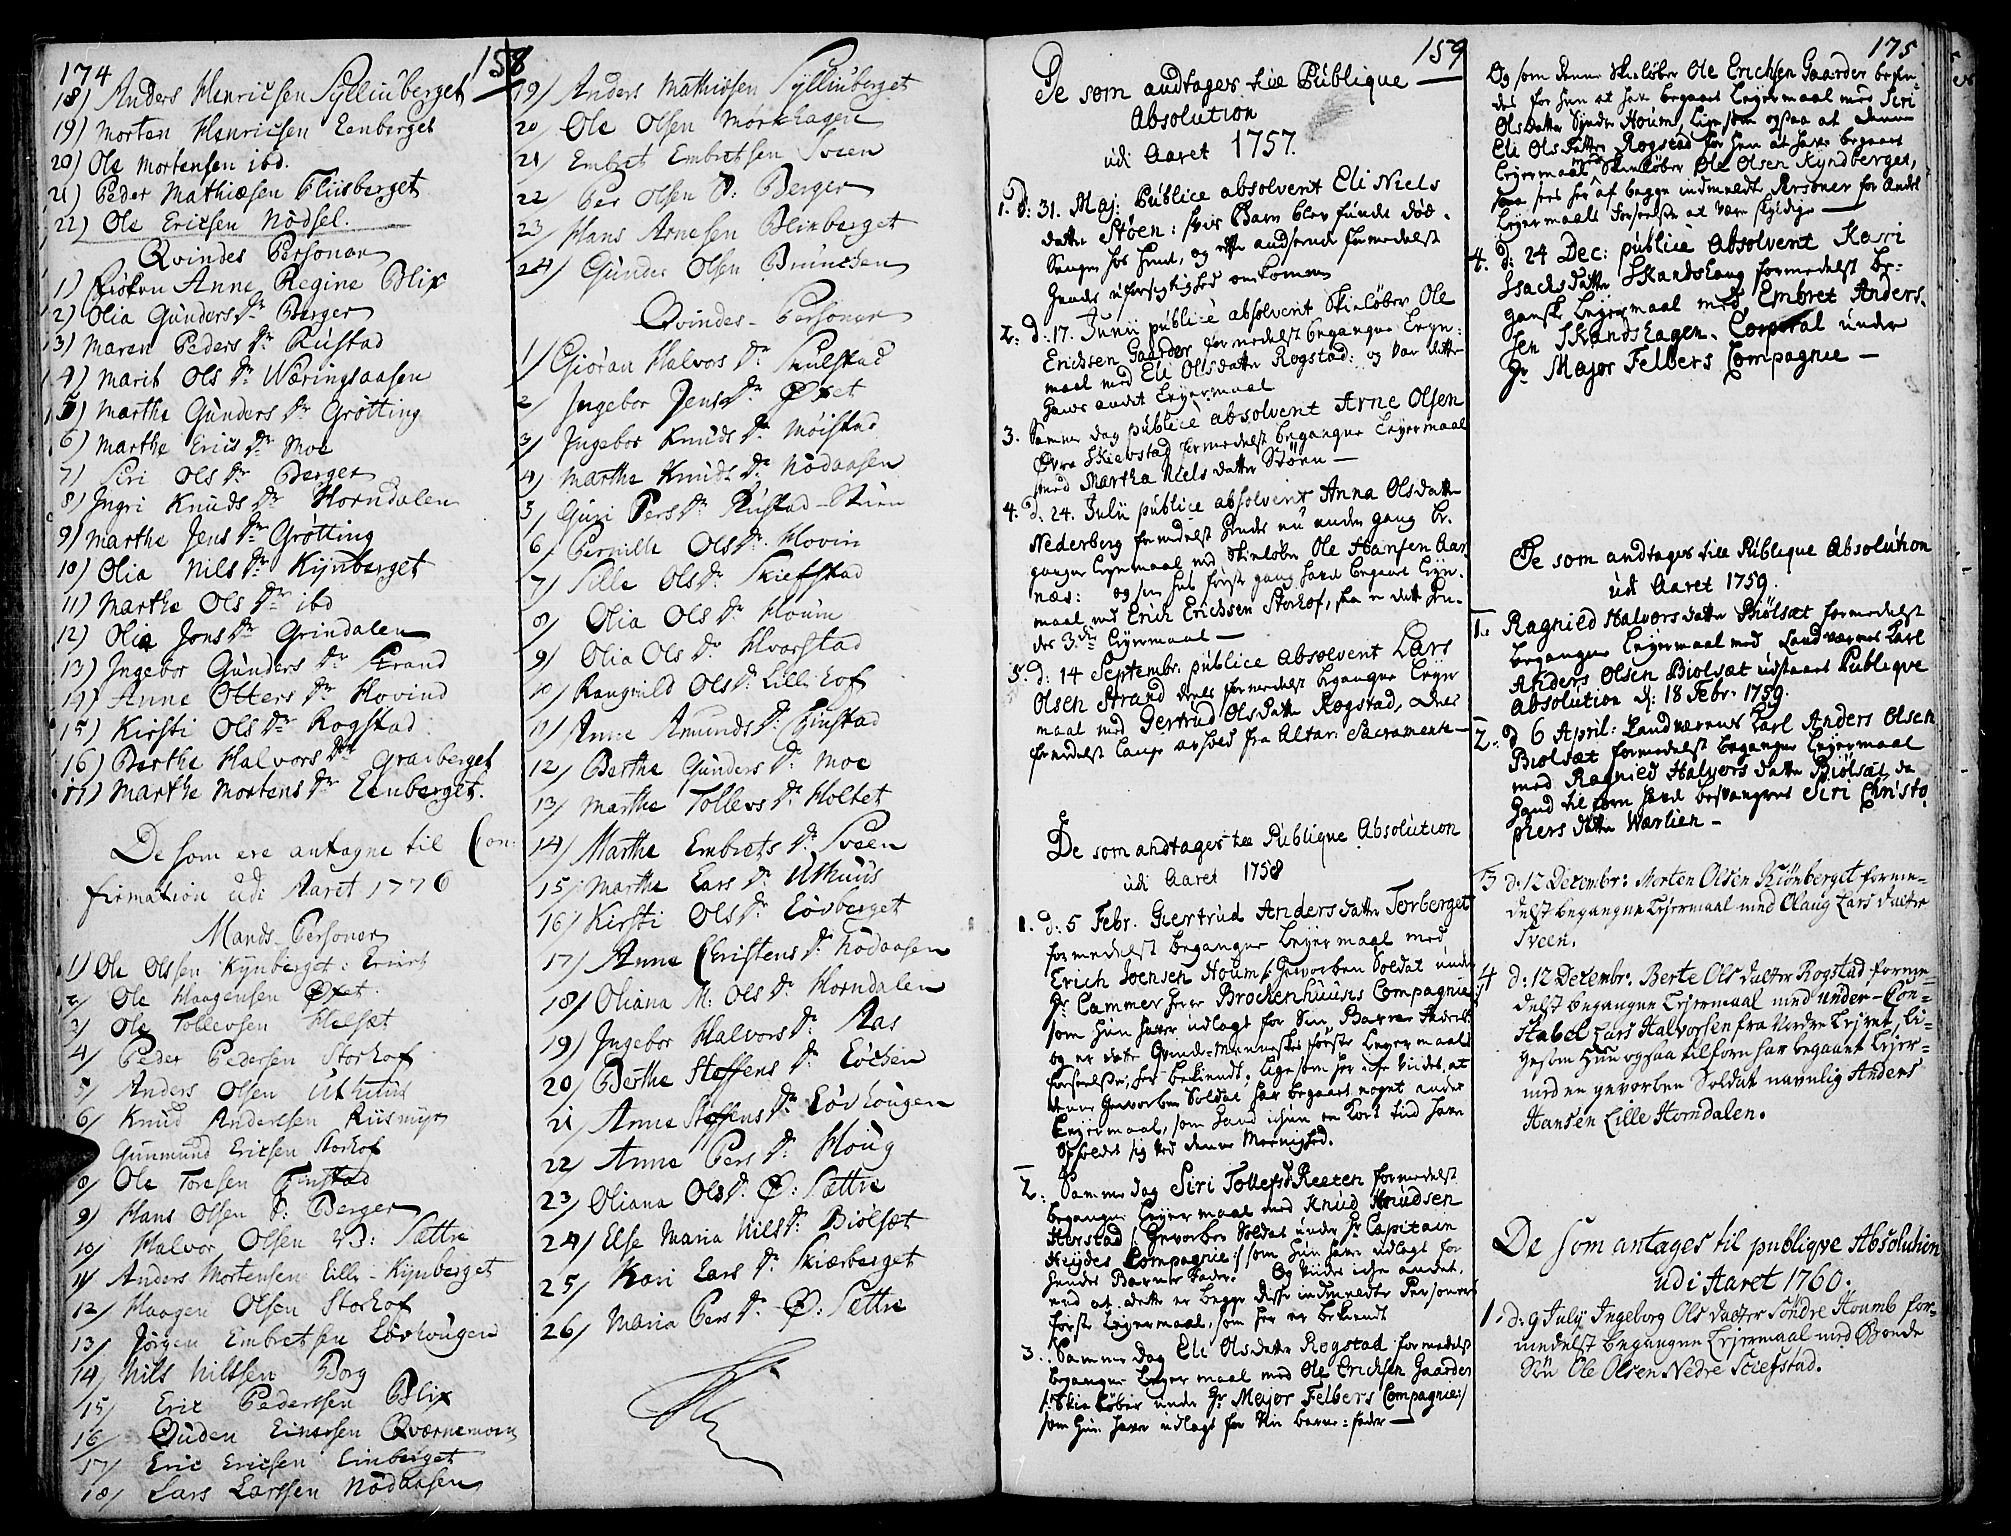 174
158
18) Anders Henricsen Sÿlliuberget
19) Morten Henricsen Eenberget
20) Ole Mortensen ibd.
21) Peder Mathiæsen Fliisberget
22) Ole Ericsen Nodsel.
Qvindes Personer
1) Frøken Anne Regine Blix
2) Olia Gunders Dr Berger
3) Maren Peders Dr Rustad
4) Marit Ols Dr Næringsaasen
5) Marthe Gunders Dr Grøtting
6) Marthe Erics Dr Moe
7) Siri Ols Dr Berger
8) Ingri Knuds Dr Horndalen
9) Marthe Jens Dr Grøtting
10) Olia Nils Dr Kijnberget
11) Marthe Ols Dr ibd
12) Olia Jons Dr Grindalen
13) Ingebor Gunders Dr Strand
14) Anne Otters Dr Hovind
15) Kirsti Ols Dr Rogstad
16) Berthe Halvors Dr Graiberget
17) Marthe Mortens Dr Eenberget.
De som ere antagne til Con-
firmation udi Aaret 1776
Mands Personer
1) Ole Olsen Kynberget
2/ Ole Haagensen Øxet
3/ Ole Tollevsen Helsæt
4/ Peder Pedersen Storhof
5/ Anders Olsen Uthuus
6/ Knud Andersen Riismyr
Gunmund Ericsen Storhof
8/ Ole Toresen Finstad
9/ Hans Olsen S: Berger
10/ Halvor Olsen V: Sættre
11/ Anders Mortensen Lille-Kijnberget
12/ Haagen Olsen Storhof
13/ Jørgen Embretsen Løvhougen
14/ Nils Nilssen Borg
15/ Eric Pederssen Blix
16/ Ouden Einersen Qværnemoen
17/ Eric Ericsen Einberget
18/ Lars Larssen Nødaasen
19/ Anders Mathiesen Sylliuberget
20/ Ole Olsen Mørkhagen
21/ Embret Embretsen Sveen
22/ Per Olsen S: Berger
23/ Hans Arnesen Blixberget
24/ Gunder Olsen Brunshen
Qvindes-Personer
1/ Giøran Halvors Dr Skulstad
2/ Ingebor Jens Dr Øxet
3/ Ingebor Knuds Dr Moistad
4/ Marthe Knuds Dr Nodaasen
5/ Guri Pers Dr Rustad-Stuen
6/ Pernille Ols Dr. Hovin
7/ Sille Ols Dr. Skiefstad
8/ Olia Ols Dr. Houm
9/ Olia Ols Dr. Hvarstad
10/ Rangnild Ols Dr. Lille hof
11/ Anne Amunds Dr. Finstad
12/ Berthe Gunders Dr. Moe
13/ Marthe Tollevs Dr. Holtet
14/ Marthe Embrets Dr. Sveen
15/ Marthe Lars Dr Uthuus
16/ Kirsti Ols Dr. Løvberget
17/ Anne Christens Dr. Nodaasen
18/ Oliana M: Ols Dr. Horndalen
19/ Ingebor Halvors Dr. Aas
20/ Berthe Steffens Dr. Løchen
21/ Anne Steffens Dr. Løvhougen
22/ Anne Pers Dr. Houg
23/ Oliana Ols Dr. Ø: Sættre
24/ Else Maria Nils Dr. Biølsæt
25/ Kari Lars Dr. Skiærberget
26/ Maria Pers Dr. Ø: Sættre
159
De som andtages til Publique
Absolution
udi Aaret 1757.
1. d: 31. Maj: Publice absolvent Eli Niels
datter Støen: hvis Barn blev funde død
Senger hos hende, og efter andseende formedelst
hendes uforsigtighed omkommen
2. d. 17. Junii publice absolvent Skieløber Ole
Erichsen Gaarder formedelst begangne Leyer:
maal med Eli Olsdatter Rogstad: og var dette
hans andet Leyermaal
3. Samme dag publice absolvent Arne Olsen
Øvre Skievstad formedelst begangne Leyermaal
med Martha Nielsdatter Støen —
4. d. 24. Julii publice absolvent Anna Olsdatter
Nederberg formedelst hendes nu anden gang be-
gangne Leyermaal med Skieløber Ole Hansen Aar
næs: og som hun første gang havde begaaet Leyer-
maal med Erich Erichsen Storhof, saa er dette hen-
des 3die Leyermaal —
5. d: 14 Septembr. publice absolvent Lars
Olsen Strand deels formedelst begangne Leyer
maal med Gertrud Olsdatter Rogstad, deels
formedelst lange avhold fra Altari Sacramente —
De som andtages til Publique Absolution
udi Aaret 1758
1. d: 5 Febr. Giertrud Andersdatter Torberget
formedelst begangne Leyermaal med
Erich Joensen Houm /: Geworben Soldat under
Hr Cammer herre Brockenhuuses Compagnie
som hun haver udlagt for sin Barne Fader:/
og er dette Qvinde-Menniskes første Leyermaals
forseelse, her bekiendt, ligesom her icke vides, at
denne Geworben Soldat har begaaet noget andet
Leyermaal, som hand ichun en kort tid have
Opholdet sig ved denne Meenighed.
2. Samme dag Siri Tollefsd Reeten formedelst
begangne Leyermaal med Knud Knudsen
Horstad /: Geworben Soldat under Hr Capitain
Heydes Compagnie:/ som hun have udlagt for
hendes Barne Fader. Og vides icke andet,
end at dette er begge disse indmeldte Personers
første Leyermaal, som her er bekiendt
3. Samme dag Eli Olsdatter Rogstad formedelst
begangne Leyermaal med Ole Erichsen Gaarder
/: Skie løber under Hr Major Felbers Compagnie:/
som hun haver udlagt for sin barne-fader —
175
Og som denne Skieløber Ole Erichsen Gaarder befin-
des for hen at have begaaet Leyermaal med Siri
Olsdatter Syndre Houm, lige som ogsaa at denne
Eli Olsdatter Rogstad for hen at have begaaet
Leyermaal med Skieløber Ole Olsen Kyndberget,
saa sees her af begge indmeldte Personer for andet
Leyermaals forseelse at være skyldige —
4. d: 24 Dec: publice Absolvent Kari
Isachsdatter Skandshaug formedelst be-
gangne Leyermaal med Embret Anders-
sen Skandshagen. Corporal under
Hr Major Felbers Compagnie —
De som andtages til Publique Absolution
udi Aaret 1759.
1. Ragnild Halvorsdatter Biølsæt formedelst
begangne Leyermaal med Landværnes Karl
Anders Olsen Biolsæt udstaaet Publique
Absolution d: 18 Febr. 1759.
2. d 6 April: Landværens Karl Anders Olsen
Biolsæt formedelst begangne Leyermaal
med Ragnild Halvors datter Biølsæt, da
hand til forn havde besvangret Siri Christo
phers datter Wærlien —
3 d: 12 Decembr: Morten Olsen Kiönberget forme-
delst begangne Leyermaal med Olaug Lars datter
Sveen.
4 d: 12 Decembr. Berte Ols datter Rogstad forme-
delst begangne Leyermaal med Under-Con-
stabel Lars Halvorsen fra Nedre Leyret, li-
gesom hun ogsaa tilforn har begaaet Leyer-
med en gevorben Soldat navnlig Anders
Hansen Lille Horndalen.
De som antages til publiqve Absolution
udi Aaret 1760.
1. d: 9 July Ingeborg Ols datter Söndre Houmb for-
medelst begangne Leyermaal med Bonde
Søn Ole Olsen Nedre Sciefstad.